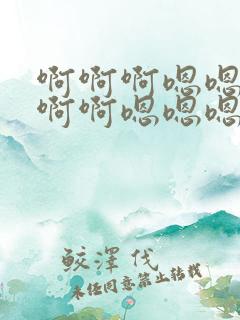 啊啊啊嗯嗯
啊啊嗯嗯嗯
鲛澤伐
未经同意禁止转载